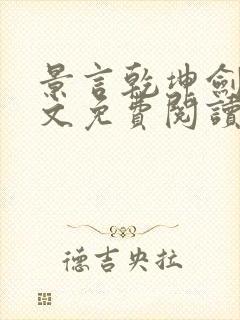 景言乾坤劍
文免費閱讀
德吉央拉